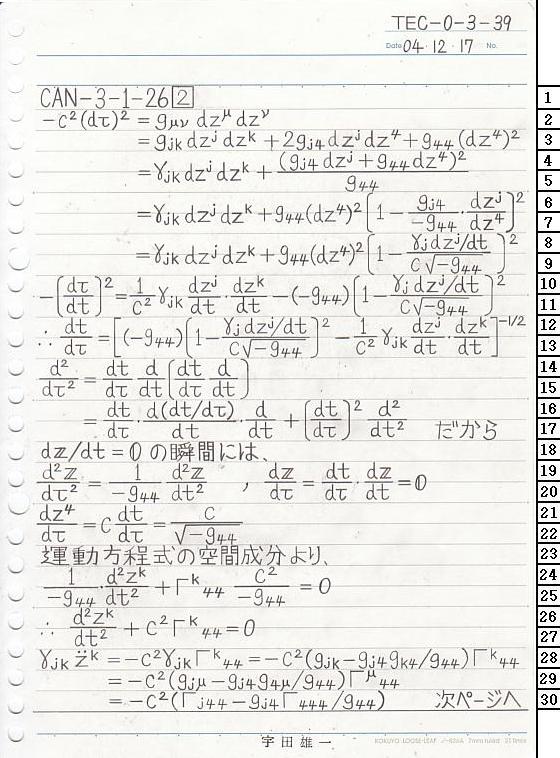 TEC-0-3-39
Date 04・12・17 No.
CAN-3-1-26[2]
-c²(dτ)² = gμν dz^μ dz^ν
= g_jk dz^j dz^k + 2g_j4 dz^j dz⁴ + g₄₄(dz⁴)²
= γ_jk dz^j dz^k + (g_j4 dz^j + g₄₄ dz⁴)²/g₄₄
= γ_jk dz^j dz^k + g₄₄(dz⁴)² [1 - g_j4/-g₄₄ · dz^j/dz⁴]²
= γ_jk dz^j dz^k + g₄₄(dz⁴)² [1 - γ_j dz^j/dt / c√-g₄₄]²
-[dτ/dt]² = 1/c² γ_jk dz^j/dt · dz^k/dt - (-g₄₄)[1 - γ_j dz^j/dt / c√-g₄₄]²
∴ dt/dτ = [(-g₄₄)[1 - γ_j dz^j/dt / c√-g₄₄]² - 1/c² γ_jk dz^j/dt · dz^k/dt]^-1/2
d²/dτ² = dt/dτ d/dt [dt/dτ d/dt]
= dt/dτ · d(dt/dτ)/dt · d/dt + (dt/dτ)² d²/dt² だから
dz/dt = 0 の瞬間には、
d²z/dτ² = 1/-g₄₄ d²z/dt² , dz/dτ = dt/dτ · dz/dt = 0
dz⁴/dτ = c dt/dτ = c/√-g₄₄
運動方程式の空間成分より、
1/-g₄₄ · d²z^k/dt² + Γ^k₄₄ c²/-g₄₄ = 0
∴ d²z^k/dt² + c²Γ^k₄₄ = 0
γ_jk z̈^k = -c²γ_jk Γ^k₄₄ = -c²(g_jk - g_j4 g_k4/g₄₄)Γ^k₄₄
= -c²(g_jμ - g_j4 g₄μ/g₄₄)Γ^μ₄₄
= -c²(Γ_j44 - g_j4 Γ₄₄₄/g₄₄) 次ページへ
宇田雄一
KOKUYO LOOSE-LEAF ノ-836A 7mm ruled 31 lines
1
2
3
4
5
6
7
8
9
10
11
12
13
14
15
16
17
18
19
20
21
22
23
24
25
26
27
28
29
30